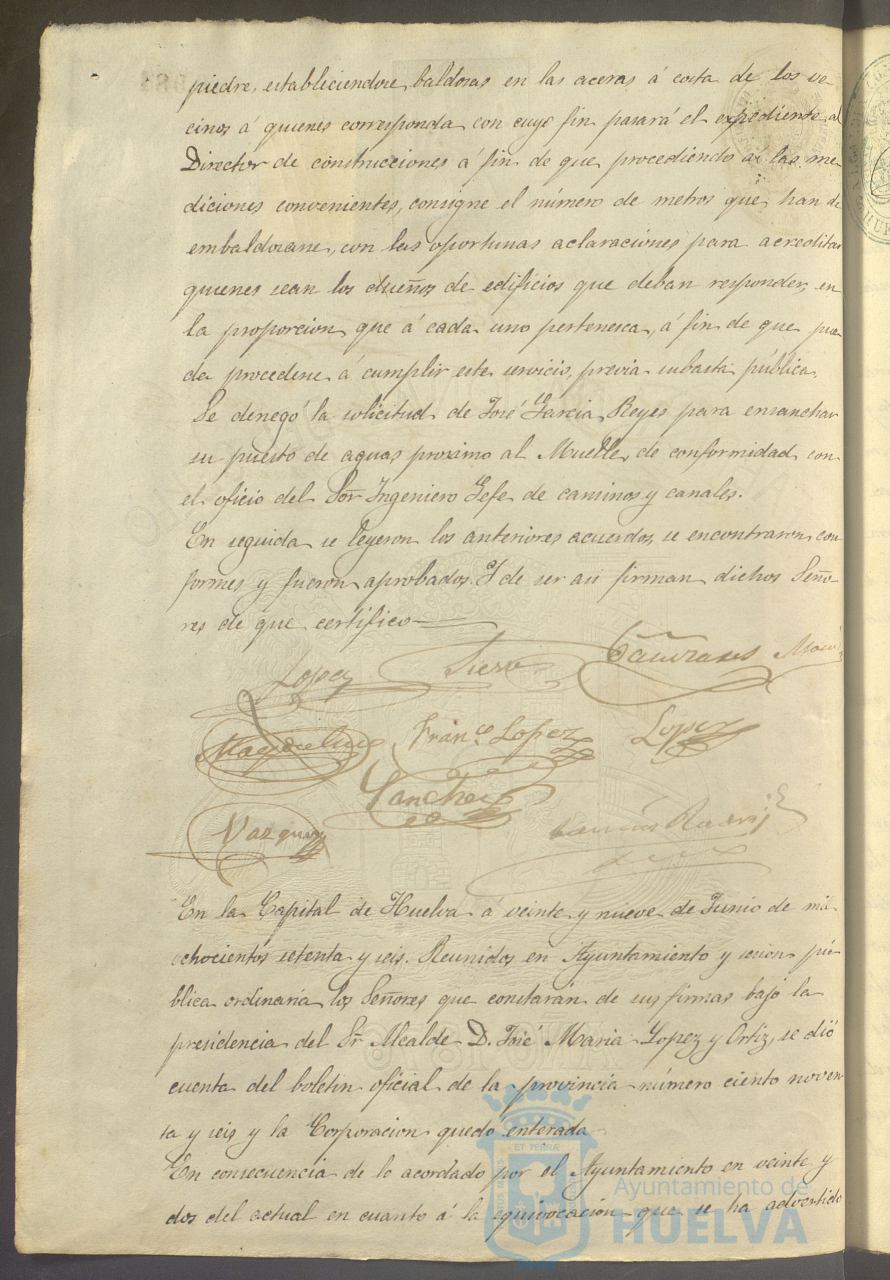 piedra, estableciendose baldosas en las aceras á costa de los ve-
cinos á quienes corresponda con cuyo fin pasará el expediente al
Director de construcciones á fin de que procediendo á las me-
diciones convenientes, consigne el número de metros que han de
embaldosarse, con las oportunas aclaraciones para acreditar
quienes sean los dueños de edificios que deban responder, en
la proporcion que á cada uno pertenesca, á fin de que pue-
da procederse á cumplir este servicio, previa subasta pública.
Se denegó la solicitud de José Garcia Reyes para ensanchar
su puesto de aguas proximo al Muelle, de conformidad con
el oficio del Sor Ingeniero Gefe de caminos y canales.
En seguida se leyeron los anteriores acuerdos, se encontraron con
formes y fueron aprobados. Y de ser asi firman dichos Seño-
res de que certifico
Lopez Sierra
Franco Lopez Lopez
Sanchez
Vazquez
En la Capital de Huelva á veinte y nueve de Junio de mil
ochocientos setenta y seis. Reunidos en Ayuntamiento y sesion pú-
blica ordinaria los Señores que constarán de sus firmas bajo la
presidencia del Sr Alcalde D. José Maria Lopez y Ortiz, se dió
cuenta del boletin oficial de la provincia número ciento noven
ta y seis y la Corporacion quedo enterada
En consecuencia de lo acordado por el Ayuntamiento en veinte y
dos del actual en cuanto á la equivocación que se ha advertido
Ayuntamiento de
HUELVA